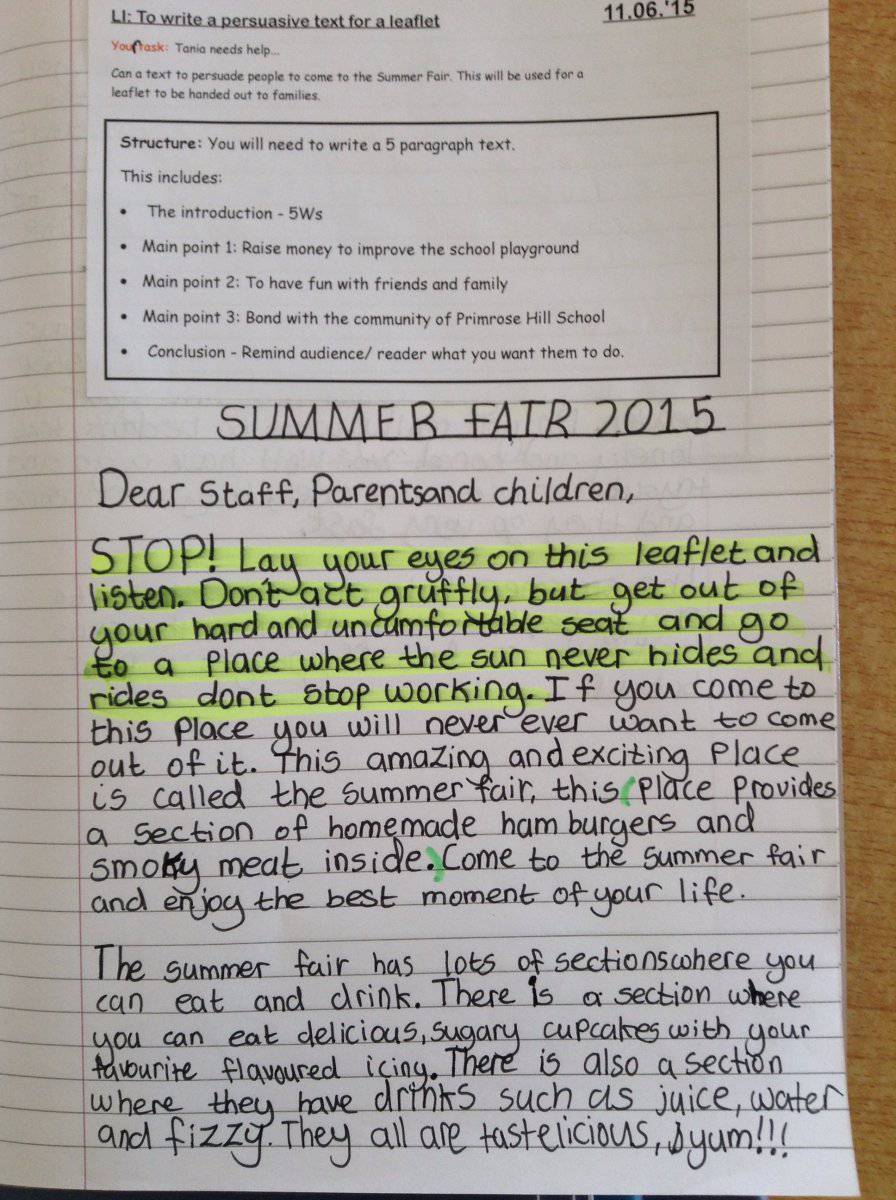 LI: To write a persuasive text for a leaflet
11.06.'15
Your task: Tania needs help...
Can a text to persuade people to come to the Summer Fair. This will be used for a
leaflet to be handed out to families.
Structure: You will need to write a 5 paragraph text.
This includes:
• The introduction - 5Ws
• Main point 1: Raise money to improve the school playground
• Main point 2: To have fun with friends and family
• Main point 3: Bond with the community of Primrose Hill School
• Conclusion - Remind audience/ reader what you want them to do.
SUMMER FAIR 2015
Dear Staff, Parentsand children,
STOP! Lay your eyes on this leaflet and
listen. Don't act gruffly, but get out of
your hard and uncumfortable seat and go
to a place where the sun never hides and
rides dont stop working. If you come to
this place you will never ever want to come
out of it. This amazing and exciting place
is called the summer fair, this (place provides
a section of homemade ham burgers and
smoky meat inside.) Come to the summer fair
and enjoy the best moment of your life.
The summer fair has lots of sectionswhere you
can eat and drink. There is a section where
you can eat delicious, sugary cupcakes with your
favourite flavoured icing. There is also a section
where they have drinks such as juice, water
and fizzy. They all are tastelicious, yum!!!